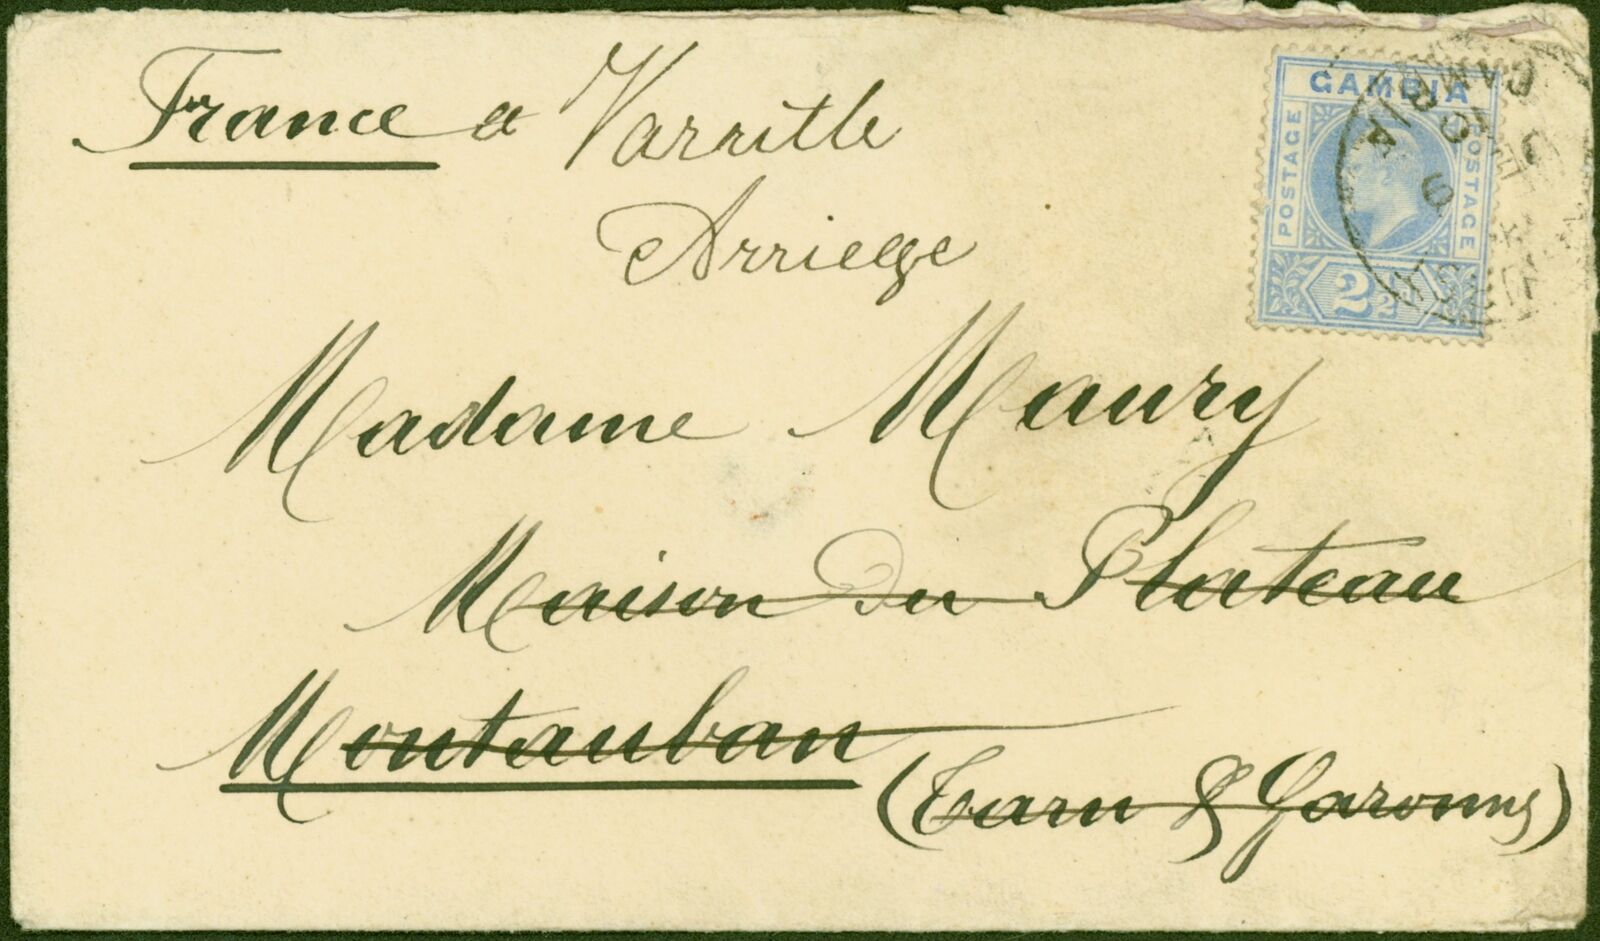 France a Varritle
Arriege
GAMBIA
POSTAGE
POSTAGE
2½
GAMBIA
Madame Maury
Maison Du Plateau
Montauban
(Tarn & Garonne)